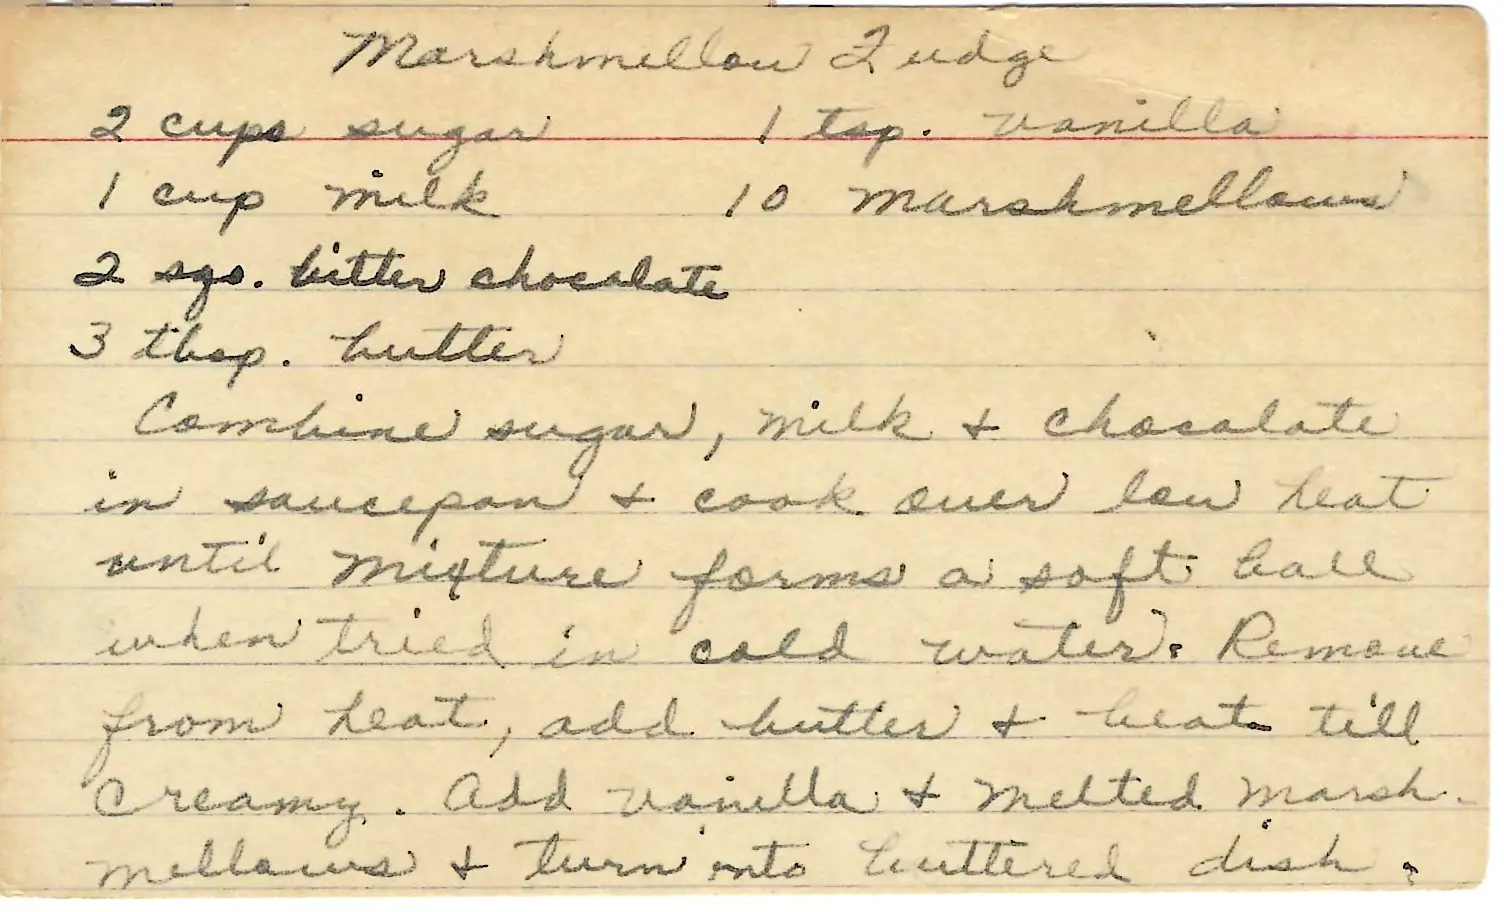 Marshmellow Fudge
2 cups sugar 1 tsp. vanilla
1 cup milk 10 marshmellows
2 sqs. bitter chocolate
3 tbsp. butter
Combine sugar, milk & chocolate
in saucepan & cook over low heat
until mixture forms a soft ball
when tried in cold water. Remove
from heat, add butter & beat till
creamy. Add vanilla & melted marsh-
mellows & turn into buttered dish.